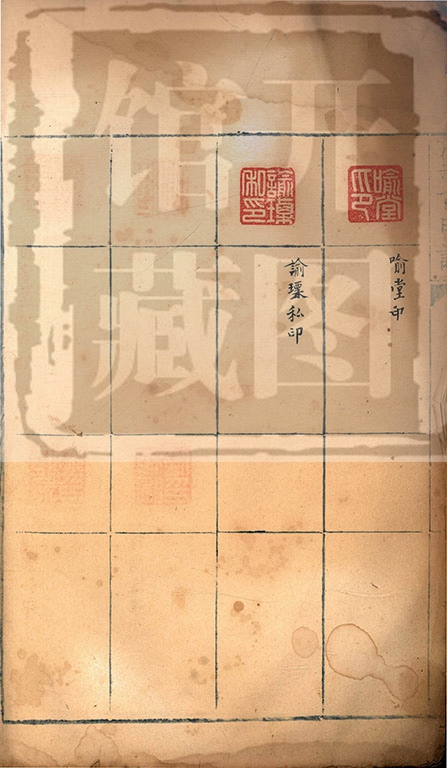 开图
馆藏
喻堂印
喻堂印
諭私印
諭私印